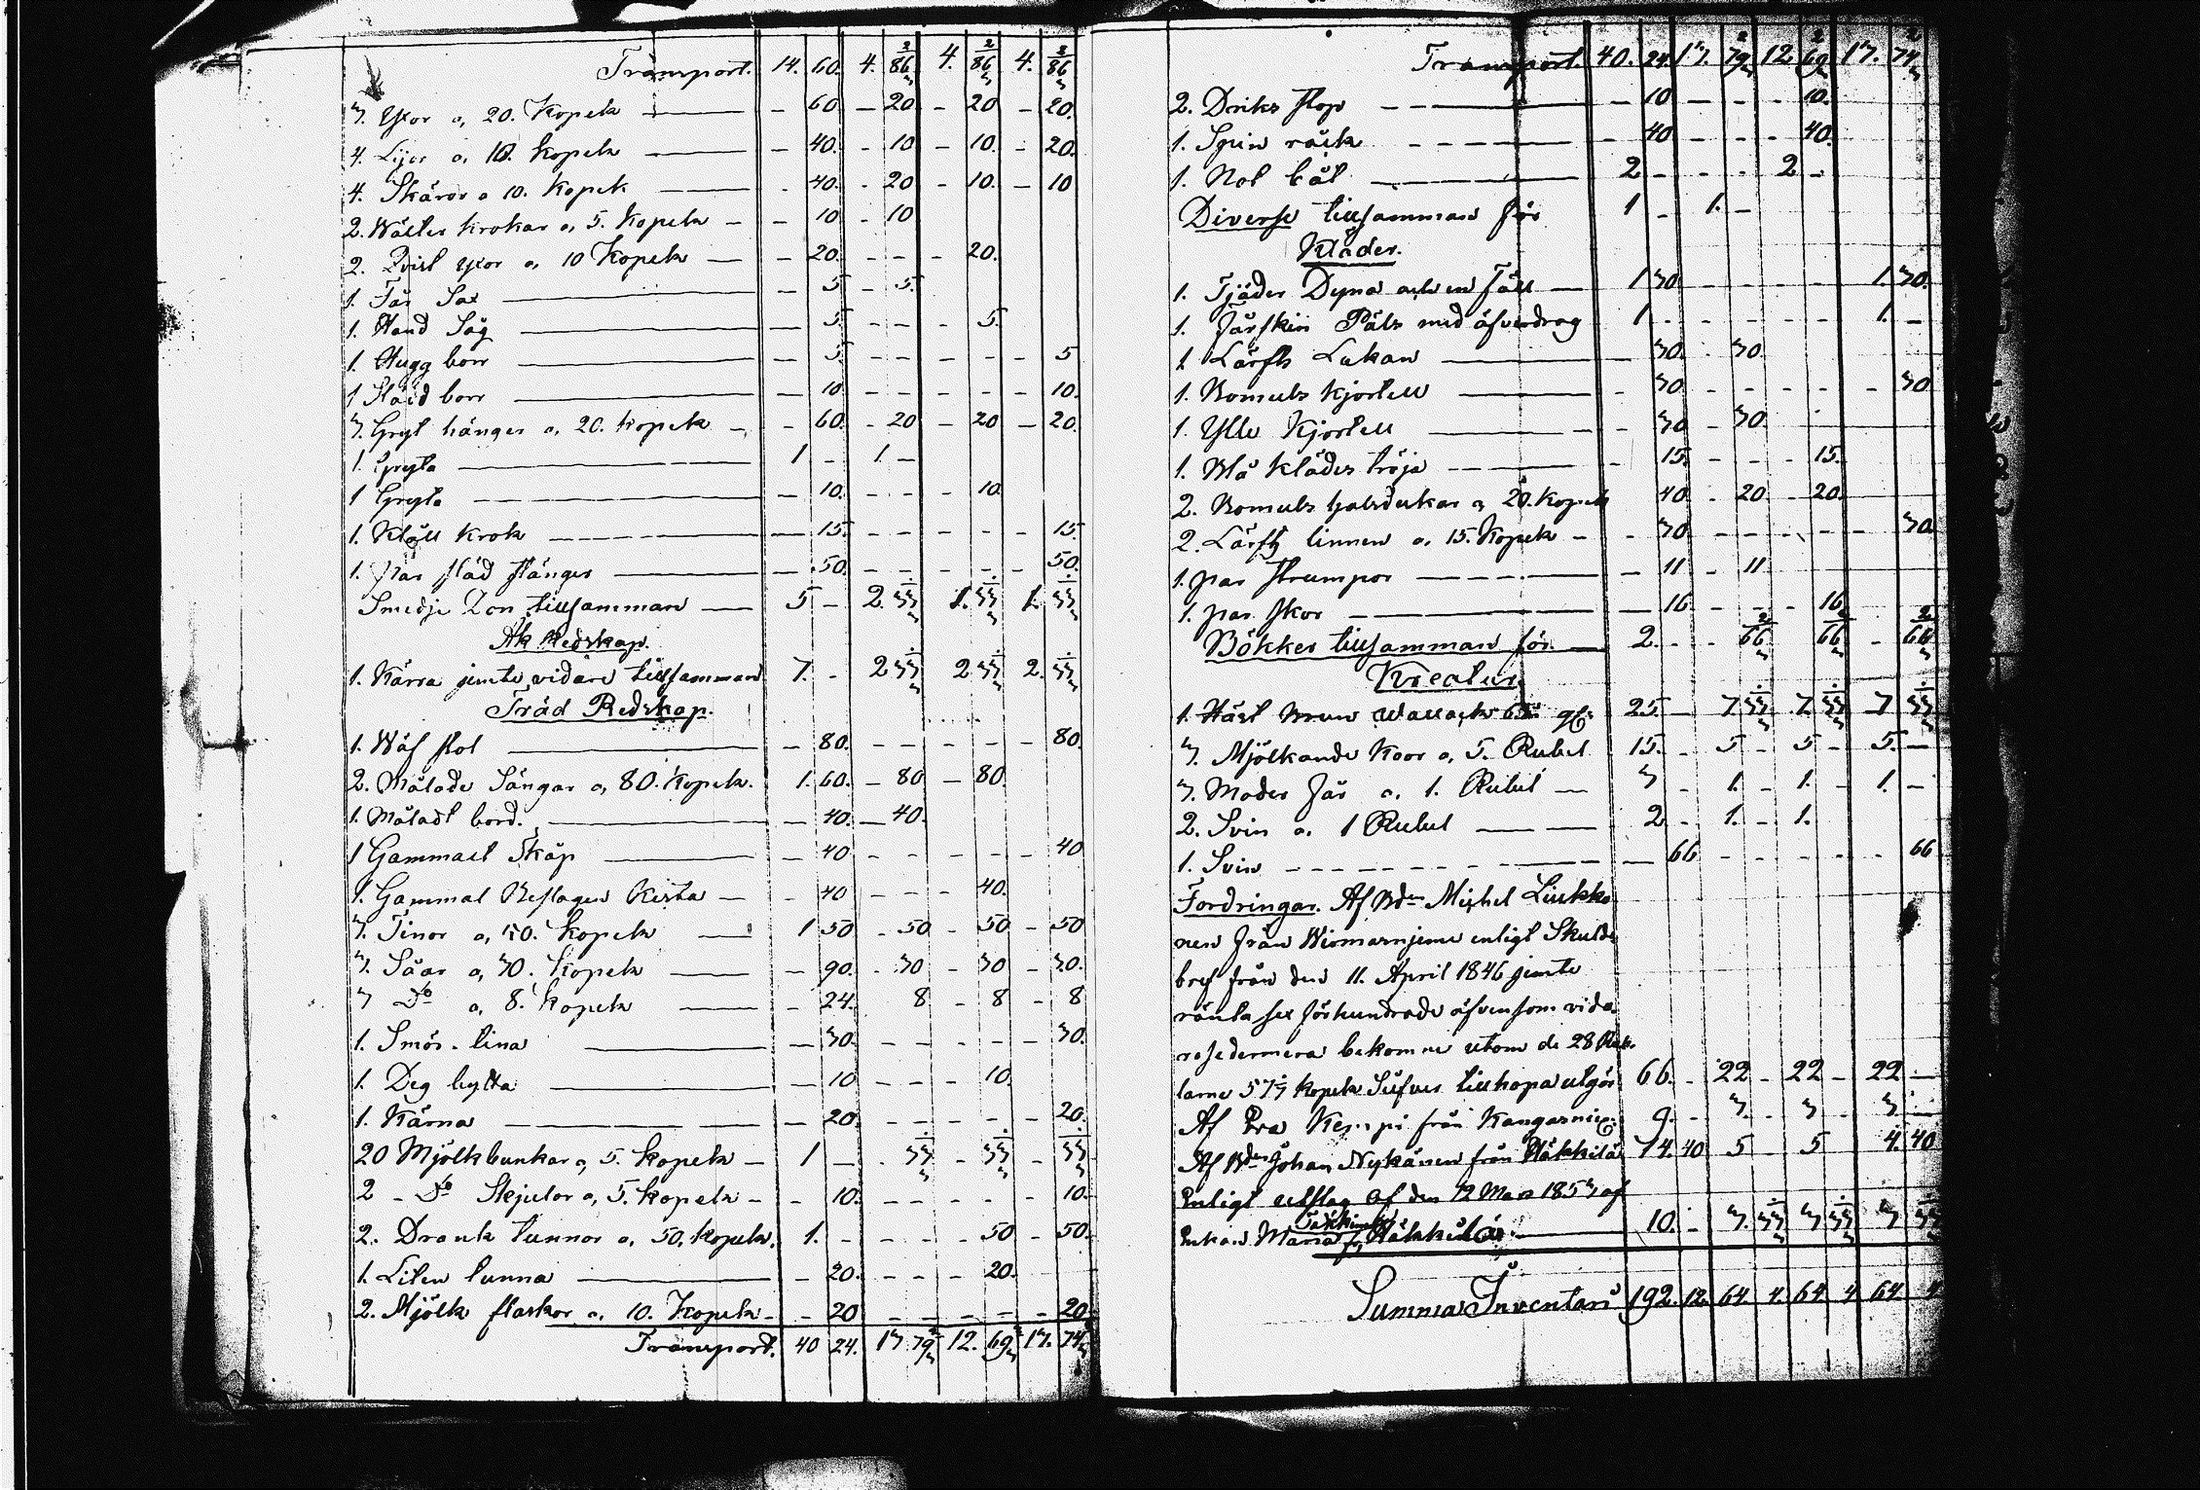 Transport. 14. 60. 4. 86 2/3 4. 86 2/3 4. 86 2/3
3. Yxor a, 20. Kopek — 60. — 20 — 20 — 20.
4. Lijor a, 10. Kopek — 40. — 10 — 10. — 20.
4. Skäror a 10. Kopek — 40. — 20 — 10. — 10
2. Wälter krokar a, 5. Kopek — 10 — 10
2. Qvist yxor a, 10 Kopek — 20. — — 20.
1. Får Sax — 5 — 5.
1. Hand Såg — 5. — — 5.
1. Hugg borr — 5. — — — 5
1 Skid borr — 10 — — — 10.
3. Gryt hänger a, 20. Kopek — 60. — 20 — 20 — 20.
1. Gryta 1 — 1. —
1 Gryta — 10. — — 10
1. Klåu krok — 15. — — — 15.
1. par släd stänger — 50. — — — 50.
Smedje Don tillsamman 5 — 2. 33 1/3 1. 33 1/3 1. 33 1/3
Åk Redskap.
1. Kärra jemte vidare tillsamman 7. — 2 33 1/3 2 33 1/3 2. 33 1/3
Träd Redskap.
1. Wäf stol — 80. — — — 80.
2. Målade Sängar a, 80. Kopek. 1. 60. — 80 — 80.
1. Måladt bord. — 40. — 40.
1 Gammalt Skåp — 40 — — — 40
1. Gammal Beslagen Kista — 40 — — 40.
3. Tinor a, 50. Kopek 1 50 — 50 — 50 — 50
3. Såar a, 30. Kopek — 90. — 30 — 30 — 30.
3 Do a, 8. Kopek — 24. 8 — 8 — 8
1. Smör-tina — 30. — — — 30.
1. Deg bytta — 10 — — 10.
1. Kärna — 20. — — — 20.
20 Mjölkbunkar a, 5. Kopek — 1 — 33 1/3 — 33 1/3 — 33 1/3
2 - Do Skjulor a, 5. Kopek — 10. — — — 10.
2. Drank tunnor a, 50. Kopek. 1. — — 50 — 50.
1. Liten tunna — 20. — — 20.
2. Mjölk flaskor a, 10. Kopek — 20 — — — 20
Transport. 40 24. 13 79 2/3 12. 69 2/3 13. 74 2/3
Transport. 40. 24. 13. 79 2/3 12 69 2/3 13. 74 2/3
2. Driks stop — 10 — — 10.
1. Spin råck — 40 — — 40.
1. Not båt 2 — — 2 —
Diverse tillsamman för 1 — 1. —
Kläder.
1. Fjäder Dyna och en Fäll 1 30. — — 1. 30.
1. Fårskin Päls med öfverdrag 1 — — — 1. —
1. Lärfts Lakan — 30. — 30.
1. Bomuls kjortell — 30. — — — 30
1. Ylle Kjortell — 30 — 30.
1. Blå kläder tröja — 15. — — 15.
2. Bomuls halsdukar a, 20. Kopek 40 — 20 — 20.
2. Lärfts linnen a, 15. Kopek — 30. — — — 30
1. par strumpor — 11 — 11
1. par skor — 16 — — 16
Böcker tillsamman för. 2. — 66 2/3 66 2/3 — 66 2/3
Kreatur.
1. Häst Brun Wallack 25 — 7 33 1/3 7 33 1/3 — 7 33 1/3
3. Mjölkande Koor a, 5. Rubel 15. — 5 — 5 — 5. —
3. Moder Får a, 1. Rubel 3 — 1. — 1. — 1. —
2. Svin a, 1 Rubel 2 — 1. — 1.
1. Svin — 66 — — — 66
Fordringar. Af Bden Michel Liukko
nen från Wiomarnjeme enligt Skulde
bref från den 11. April 1846 jemte
ränta sex förhundrade äfvensom vida
resedermera bekomne utom de 28 Rub.
larne 57 1/7 kopek Silfver tillhopa utgör 66. — 22 — 22 — 22 —
Af Kemppi från Kangasniemi 9. — 3. — 3 — 3. —
Af Bden Johan Nykänen från Häkkilä 14. 40 5 — 5 4. 40
Enligt utslag af den 12 Mars 1853 af
Enkan Maria Häkkilä 10. — 3. 33 1/3 3 33 1/3 3 33 1/3
Summa Inventarii 192. 12. 64. 4. 64. 4 64. 4